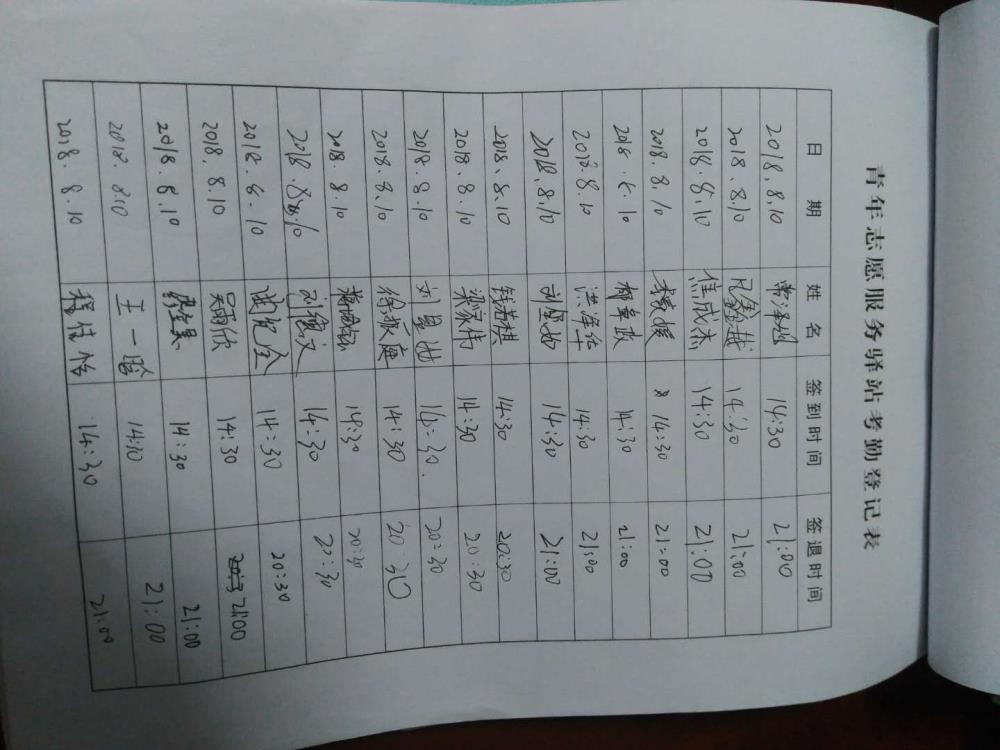 青年志愿服务驿站考勤登记表
日期 姓名 签到时间 签退时间
2018.8.10 14:30 21:00
2018.8.10 凡鑫越 14:30 21:00
2018.8.10 焦成杰 14:30 21:00
2018.8.10 14:30 21:00
2018.8.10 14:30 21:00
2018.8.10 洪泽华 14:30 21:00
2018.8.10 14:30 21:00
2018.8.10 钱若棋 14:30 20:30
2018.8.10 梁家伟 14:30 20:30
2018.8.10 14:30 20:30
2018.8.10 徐振庭 14:30 20:30
2018.8.10 14:30 20:30
2018.8.10 刘德文 14:30 20:30
2018.8.10 14:30 20:30
2018.8.10 吴雨欣 14:30 21:00
2018.8.10 14:30 21:00
2018.8.10 王一 14:10 21:00
2018.8.10 程佳怡 14:30 21:00